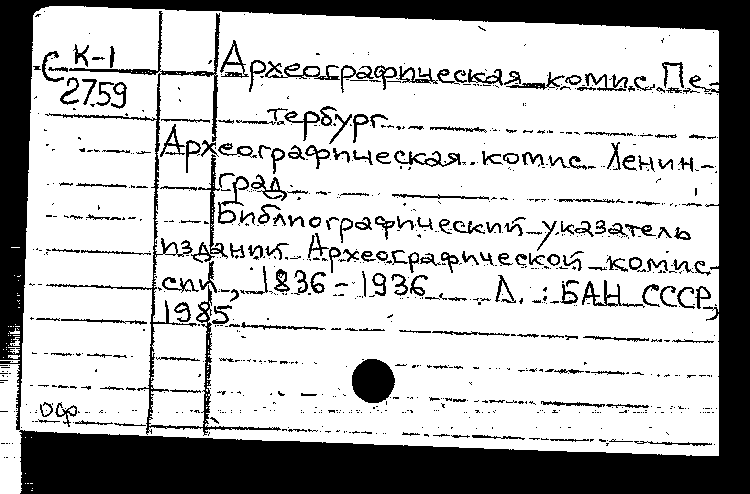 С К-1
2759
Археографическая комис. Пе-
тербург.
Археографическая комис. Ленин-
град.
Библиографический указатель
изданий Археографической комис-
сии, 1836-1936. Л.: БАН СССР,
1985.